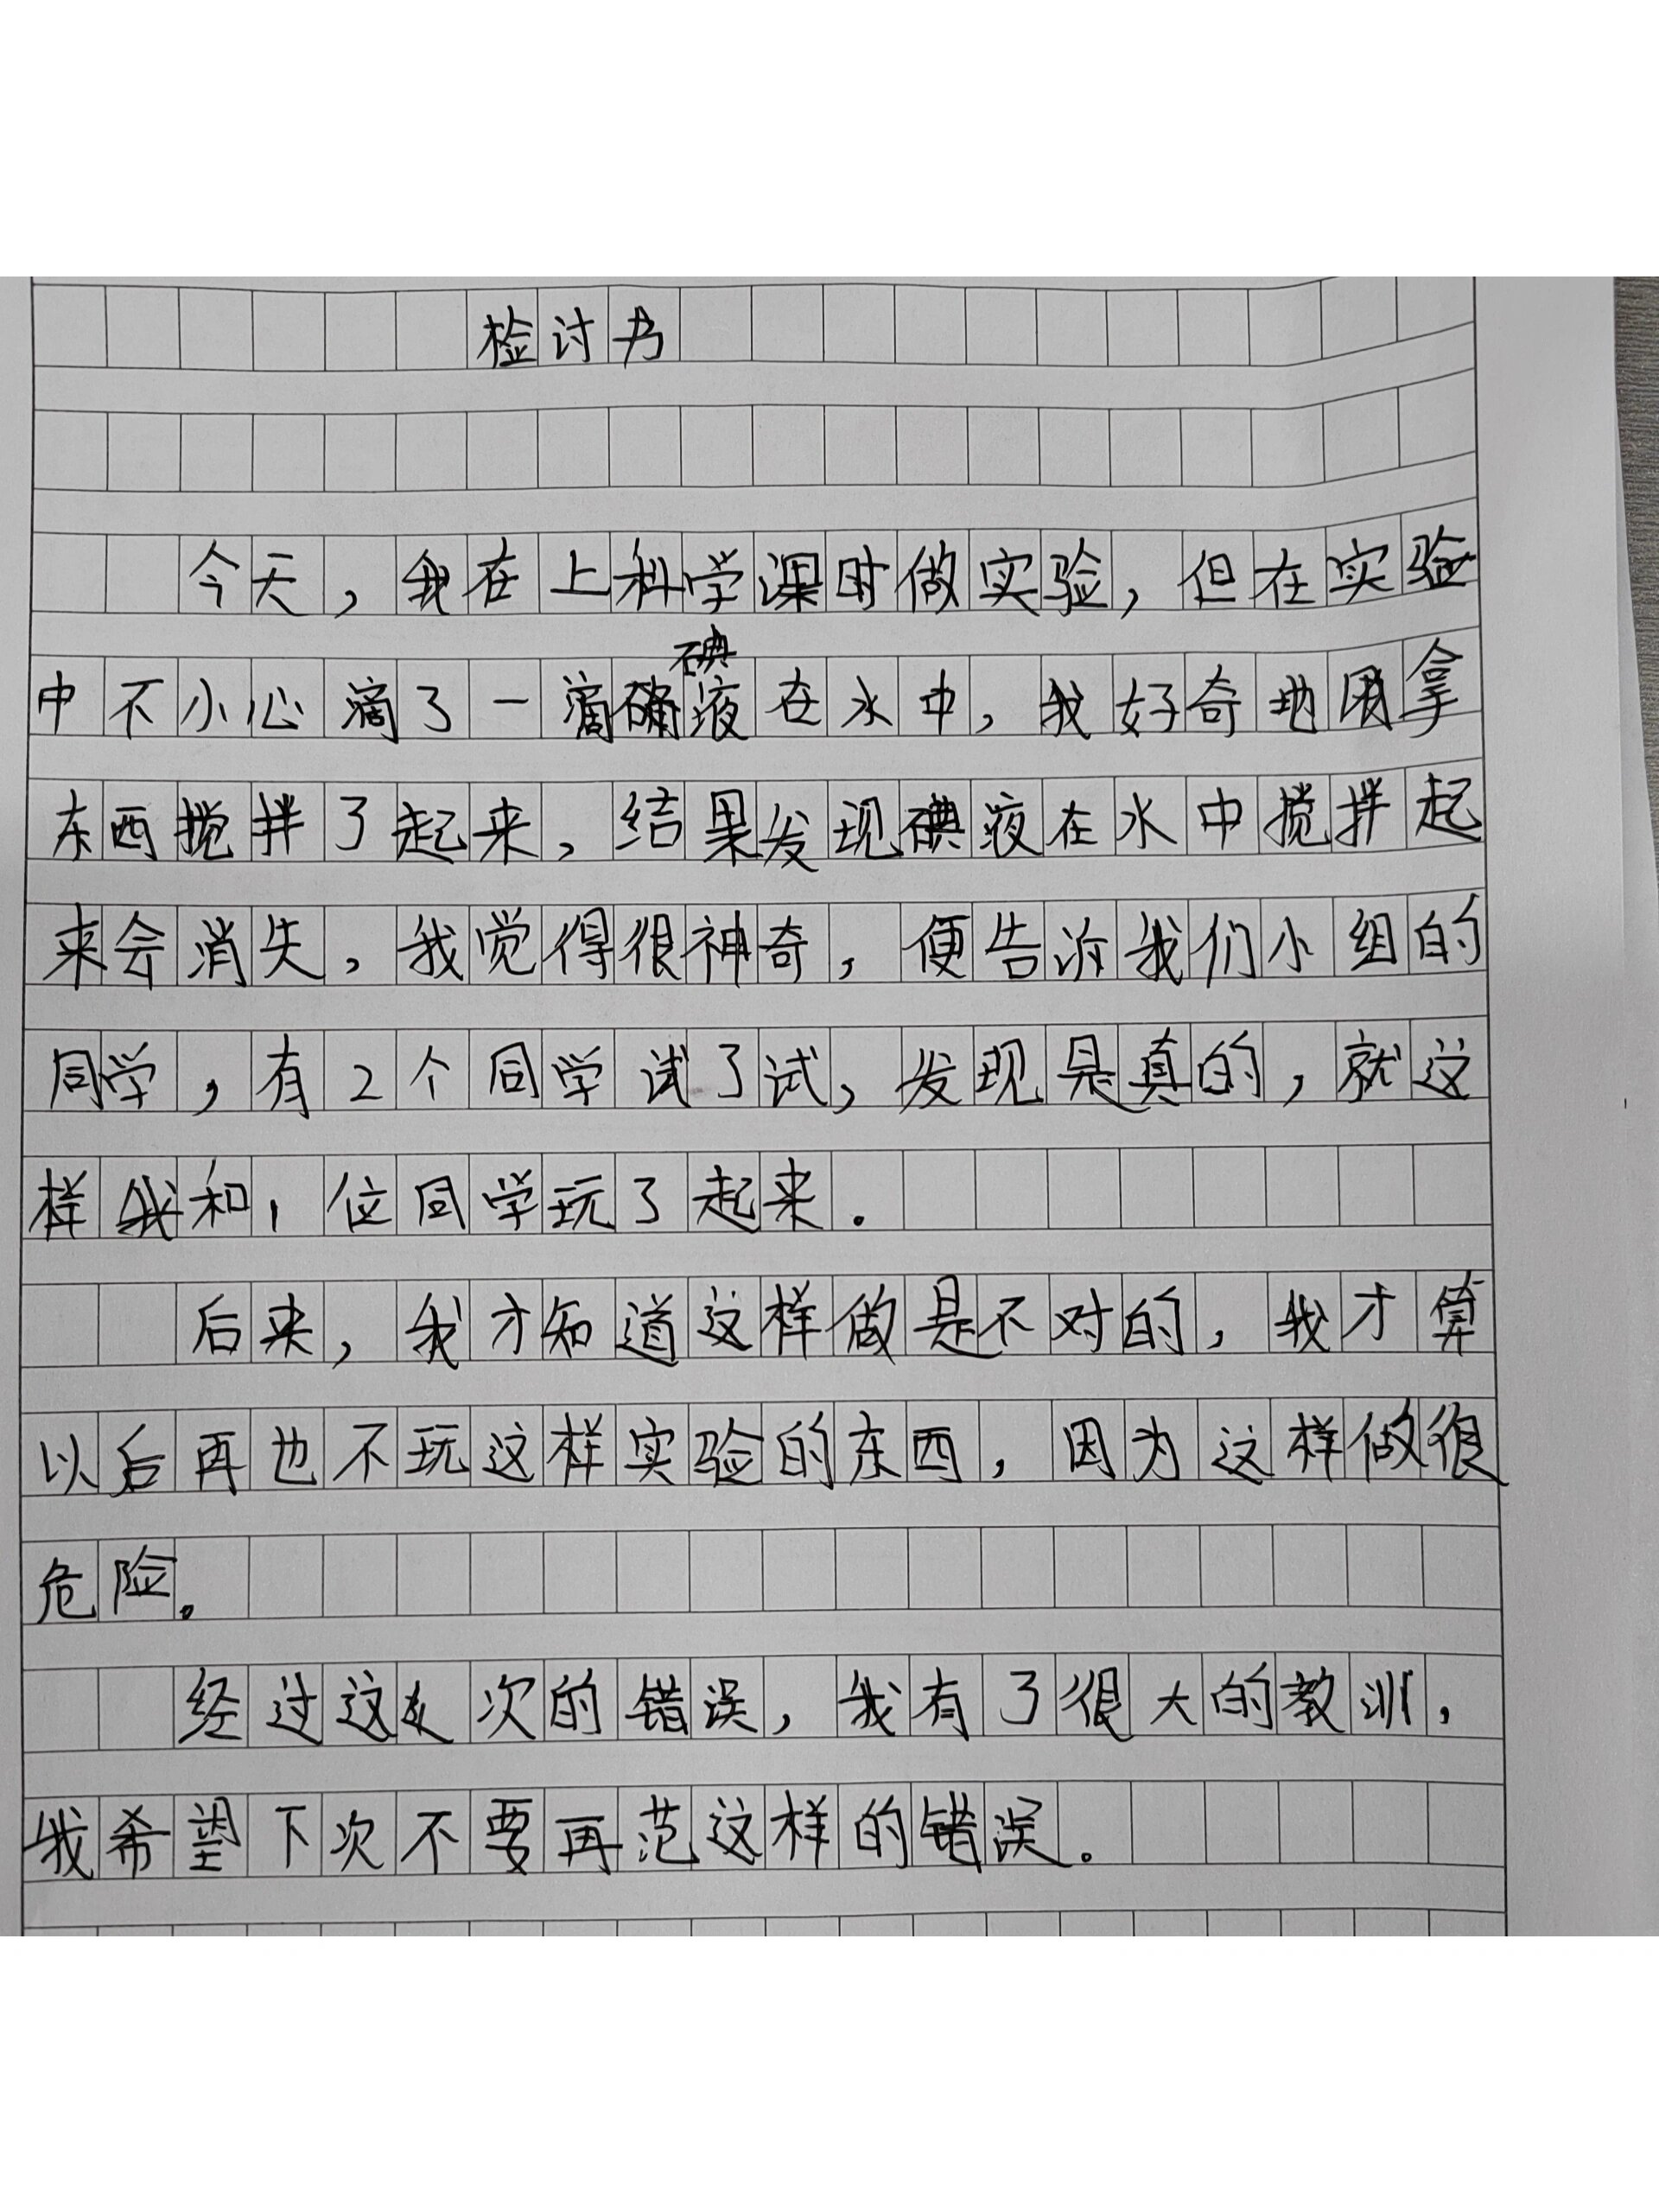 检讨书
今天，我在上科学课时做实验，但在实验
碘
中不小心滴了一滴液在水中，我好奇地拿
东西搅拌了起来，结果发现碘液在水中搅拌起
来会消失，我觉得很神奇，便告诉我们小组的
同学，有2个同学试了试，发现是真的，就这
样我和1位同学玩了起来．
后来，我才知道这样做是不对的，我才算
以后再也不玩这样实验的东西，因为这样做很
危险。
经过这次的错误，我有了很大的教训，
我希望下次不要再范这样的错误。